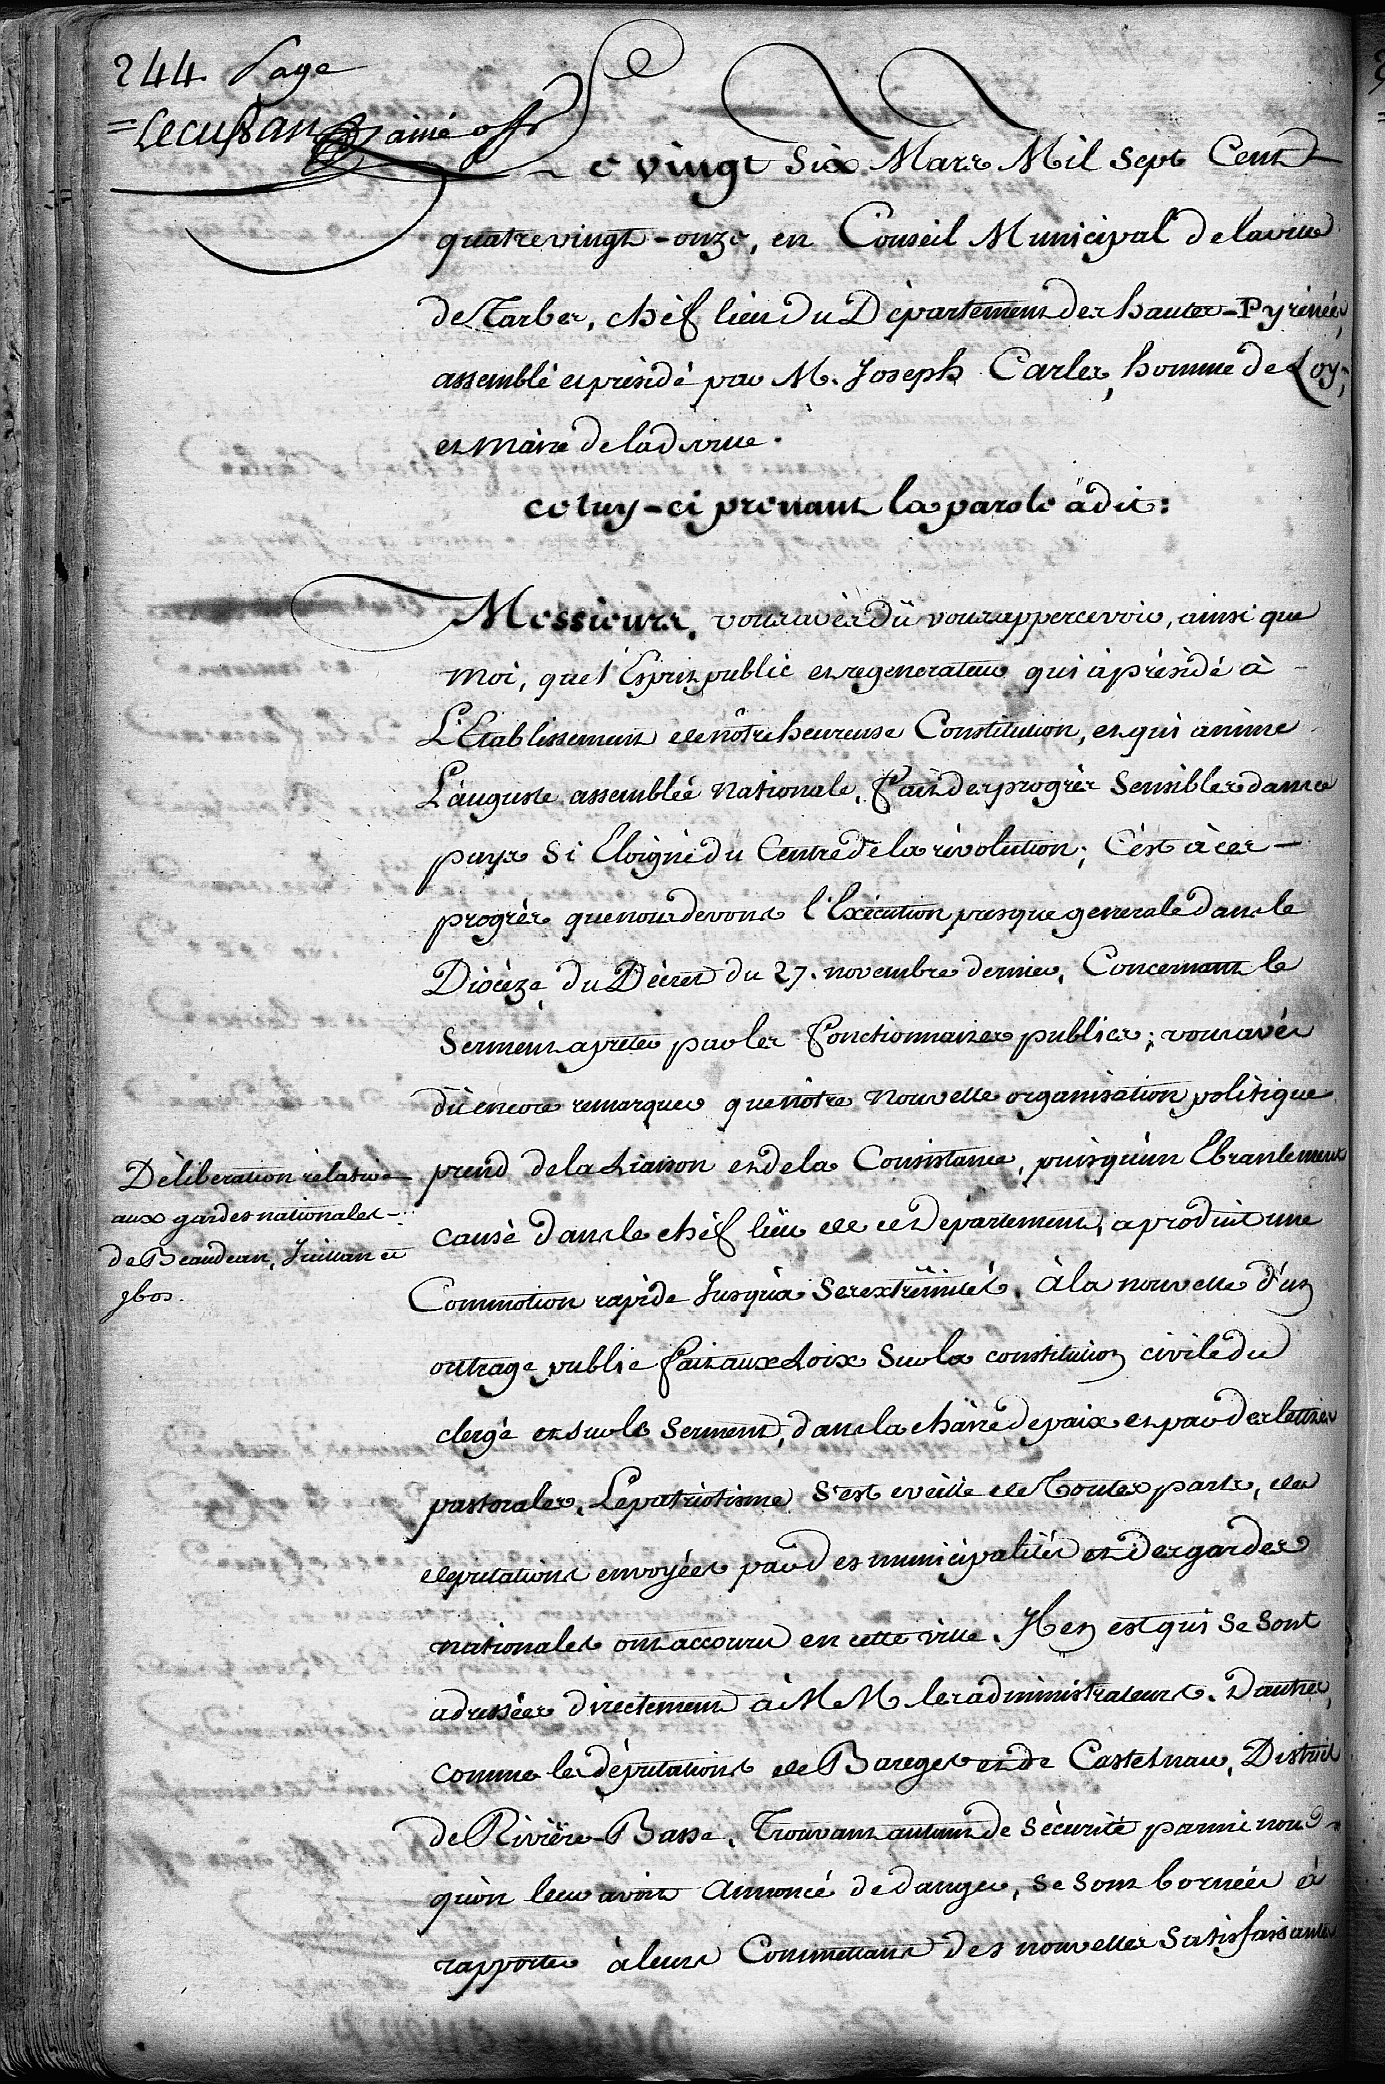 244. Page
Lecussan ainé offr
Le vingt Six Mars Mil Sept Cent
quatrevingt-onze, en Conseil Municipal de la ville
de Tarbes, chéf lieu du Département des hautes-Pyrénées,
assemblé et présidé par M. Joseph Carles, homme de Loy,
et maire de lad. ville.
celuy-ci prenant la parole à dit:
Messieurs, vous avés dû vous appercevoir, ainsi que
moi, que l'Esprit public et regenerateur qui à présidé à
L'Etablissement de nôtre heureuse Constitution, et qui anime
L'auguste assemblée Nationale, fait des progrès Sensibles dans ce
pays Si Eloigné du Centre de la révolution; C'est à ces
progrès que nous devons l'Exécution presque generale dans le
Diocèze du Décret du 27. novembre dernier, Concernant le
Serment à preter par les fonctionnaires publics; vous avés
dû encore remarquer que nôtre Nouvelle organisation politique
prend de la Liaison et de la Consistance, puisqu'un Ebranlement
causé dans le chéf lieu de ce Département, a produit une
Commotion rapide Jusqu'à Ses extrémités. à la nouvelle d'un
outrage public fait aux Loix Sur la constitution civile du
clergé et Sur le Serment, dans la chaire de paix et par des lettres
pastorales, Le patriotisme S'est eveillé de Toutes parts, des
députations envoyées par des municipalités et des gardes
nationales ont accouru en cette ville. Il en est qui Se Sont
adressées directement à MM. les administrateurs. D'autres,
comme les députations de Bareges et de Castelnau, District
de Rivière-Basse, Trouvant autant de Sécurité parmi nous
qu'on leur avoit Annoncé de danger, Se Sont bornées à
rapporter à leurs Commettans des nouvelles Satisfaisantes
Déliberation rélative
aux gardes nationales
de Beaudean, Juillan et
jbos.